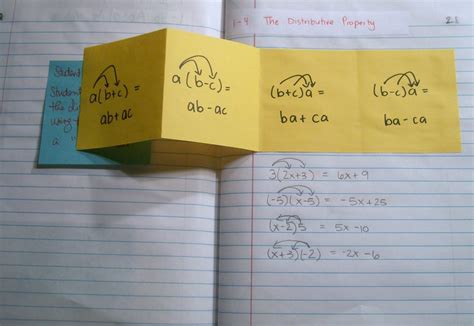 1-4 The Distributive Property
21
Student
Student
the di
using t
a "
a(b+c) =
ab+ac
a(b-c)=
ab-ac
(b+c)a =
ba+ca
(b-c)a =
ba-ca
3(2x+3) = 6x+9
(-5)(x-5) = -5x+25
(x-2)5 = 5x-10
(x+3)(-2) = -2x-6